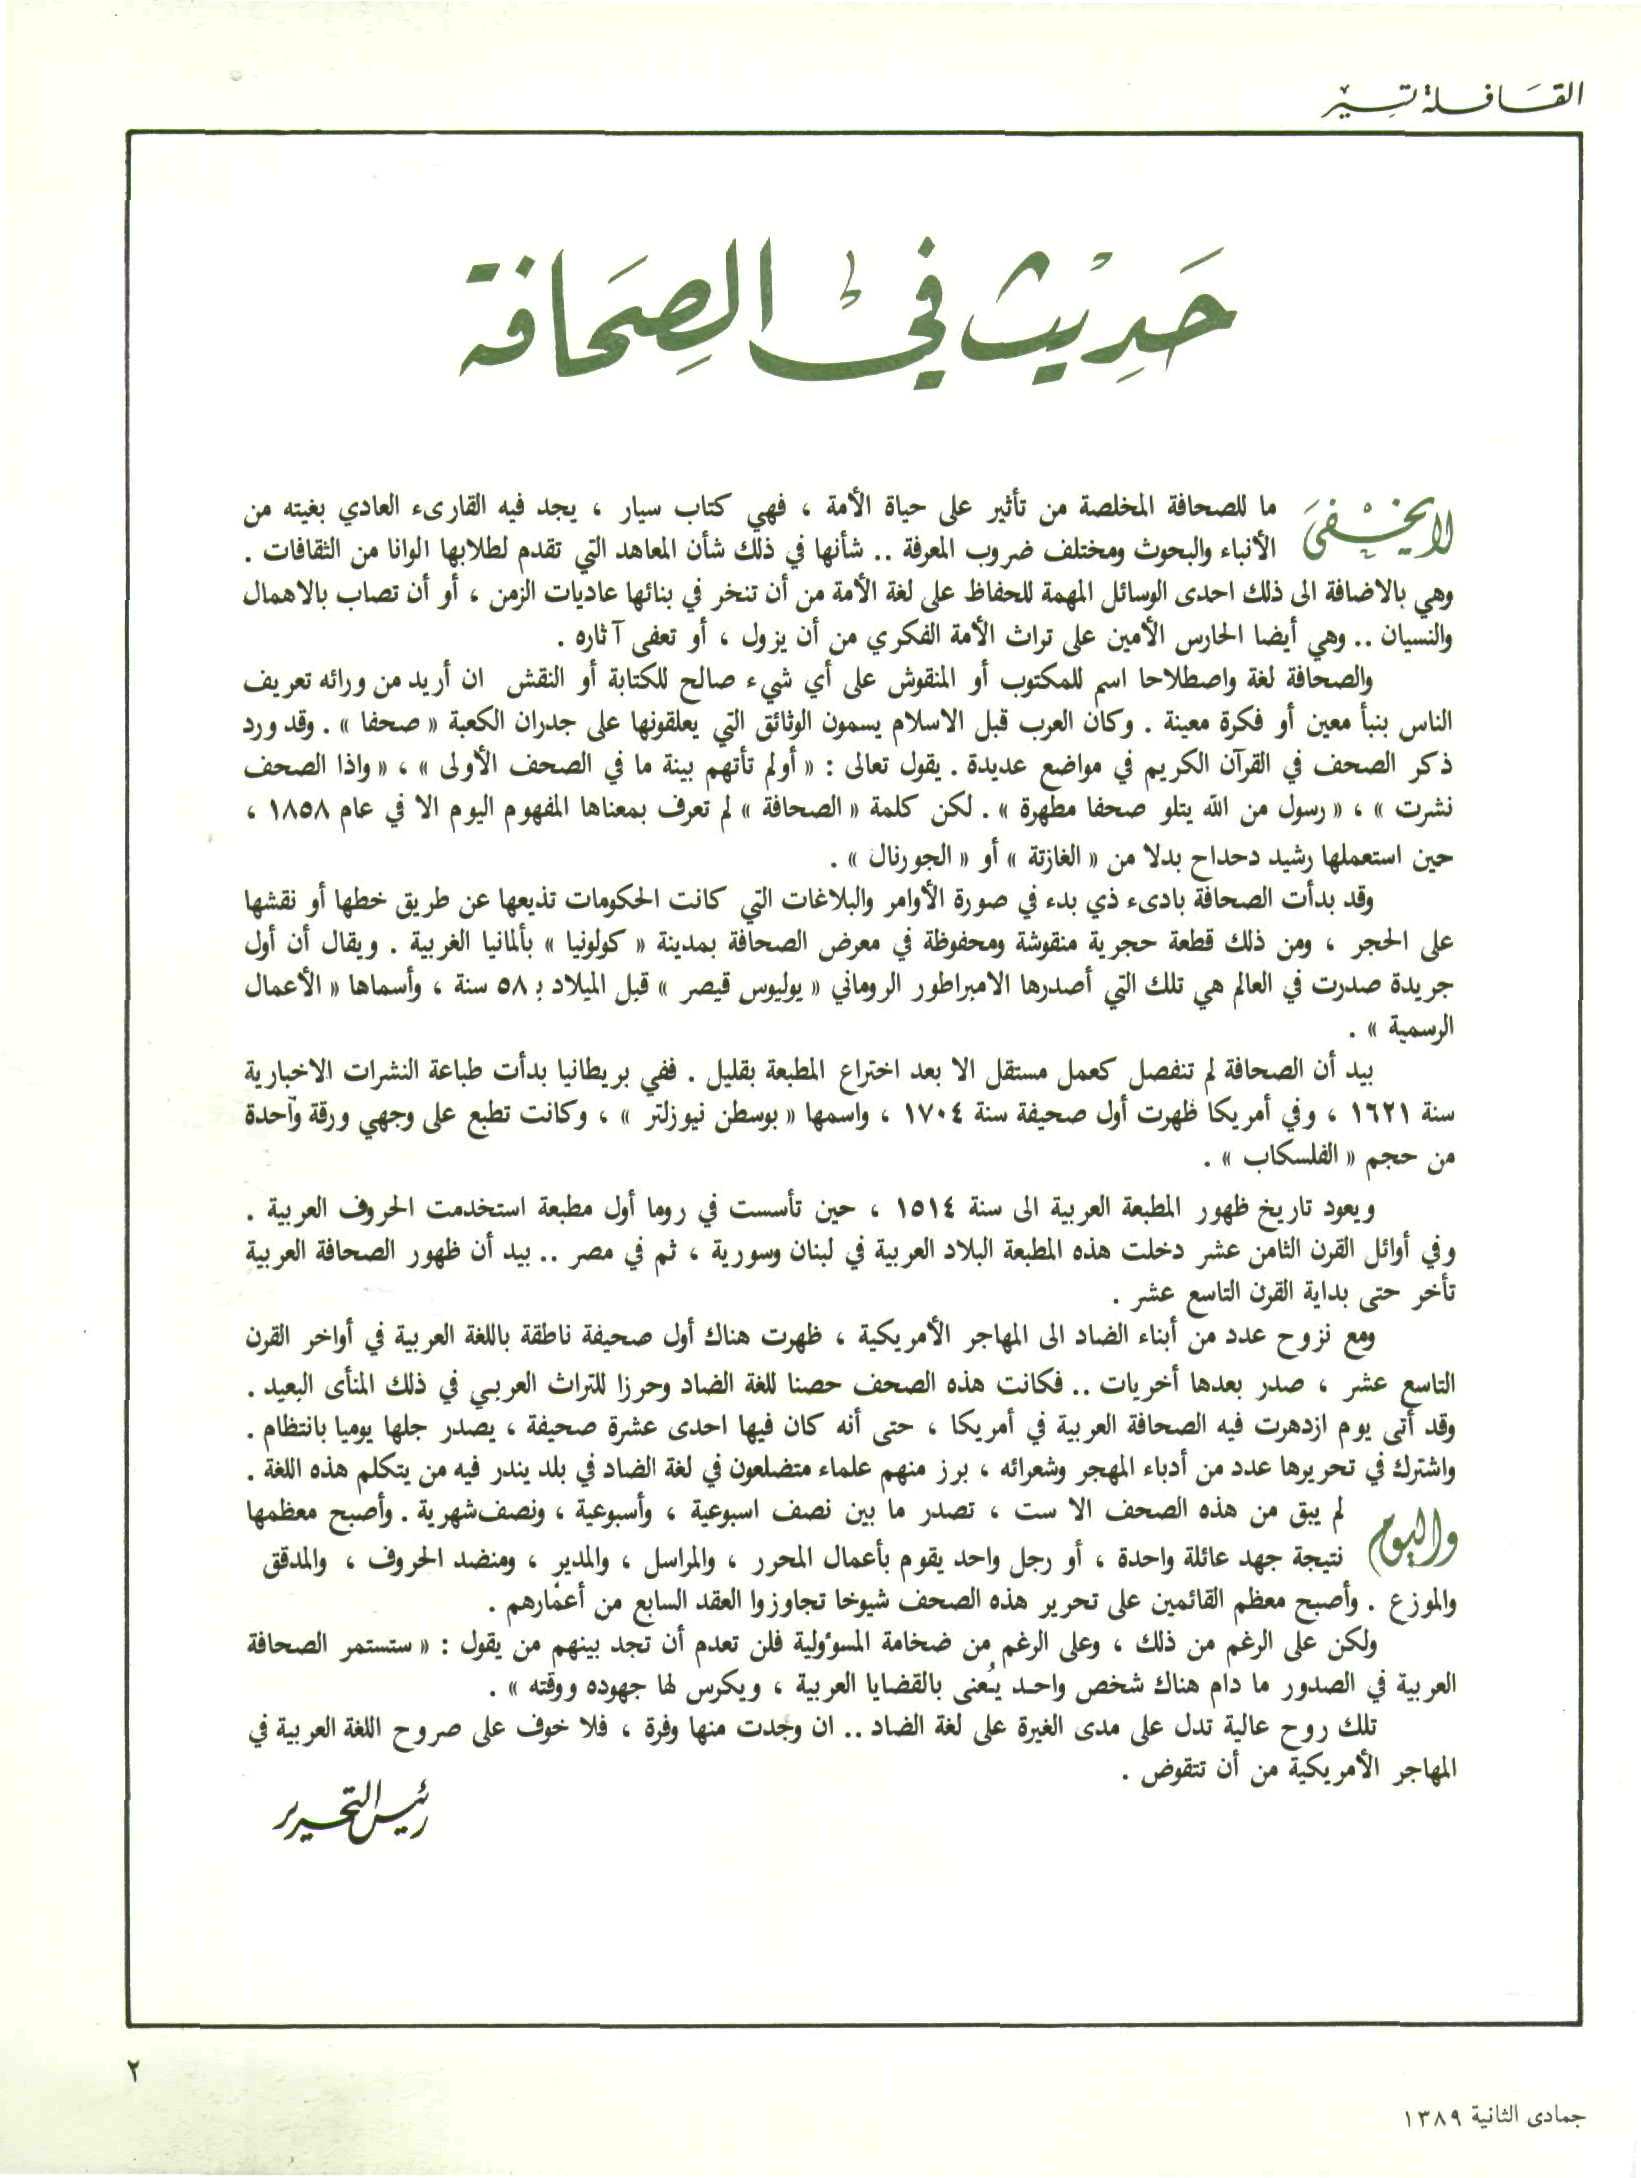 القافلة تسير
حديث في الصحافة
لا يخفى ما للصحافة المخلصة من تأثير على حياة الأمة ، فهي كتاب سيار ، يجد فيه القارىء العادي بغيته من
الأنباء والبحوث ومختلف ضروب المعرفة .. شأنها في ذلك شأن المعاهد التي تقدم لطلابها الوانا من الثقافات .
وهي بالاضافة الى ذلك احدى الوسائل المهمة للحفاظ على لغة الأمة من أن تنخر في بنائها عاديات الزمن ، أو أن تصاب بالاهمال
والنسيان .. وهي أيضا الحارس الأمين على تراث الأمة الفكري من أن يزول ، أو تعفى آثاره .
والصحافة لغة واصطلاحا اسم للمكتوب أو المنقوش على أي شيء صالح للكتابة أو النقش ان أريد من ورائه تعريف
الناس بنبأ معين أو فكرة معينة . وكان العرب قبل الاسلام يسمون الوثائق التي يعلقونها على جدران الكعبة « صحفا » . وقد ورد
ذكر الصحف في القرآن الكريم في مواضع عديدة . يقول تعالى : « أولم تأتهم بينة ما في الصحف الأولى » ، « واذا الصحف
نشرت » ، « رسول من الله يتلو صحفا مطهرة » . لكن كلمة « الصحافة » لم تعرف بمعناها المفهوم اليوم الا في عام ١٨٥٨ ،
حين استعملها رشيد دحداح بدلا من « الغازتة » أو « الجورنال » .
وقد بدأت الصحافة بادىء ذي بدء في صورة الأوامر والبلاغات التي كانت الحكومات تذيعها عن طريق خطها أو نقشها
على الحجر ، ومن ذلك قطعة حجرية منقوشة ومحفوظة في معرض الصحافة بمدينة « كولونيا » بألمانيا الغربية . ويقال أن أول
جريدة صدرت في العالم هي تلك التي أصدرها الامبراطور الروماني « يوليوس قيصر » قبل الميلاد بـ ٥٨ سنة ، وأسماها « الأعمال
الرسمية » .
بيد أن الصحافة لم تنفصل كعمل مستقل الا بعد اختراع المطبعة بقليل . ففي بريطانيا بدأت طباعة النشرات الاخبارية
سنة ١٦٢١ ، وفي أمريكا ظهرت أول صحيفة سنة ١٧٠٤ ، واسمها « بوسطن نيوزلتر » ، وكانت تطبع على وجهي ورقة واحدة
من حجم « الفلسكاب » .
ويعود تاريخ ظهور المطبعة العربية الى سنة ١٥١٤ ، حين تأسست في روما أول مطبعة استخدمت الحروف العربية .
وفي أوائل القرن الثامن عشر دخلت هذه المطبعة البلاد العربية في لبنان وسورية ، ثم في مصر .. بيد أن ظهور الصحافة العربية
تأخر حتى بداية القرن التاسع عشر .
ومع نزوح عدد من أبناء الضاد الى المهاجر الأمريكية ، ظهرت هناك أول صحيفة ناطقة باللغة العربية في أواخر القرن
التاسع عشر ، صدر بعدها أخريات .. فكانت هذه الصحف حصنا للغة الضاد وحرزا للتراث العربي في ذلك المنأى البعيد .
وقد أتى يوم ازدهرت فيه الصحافة العربية في أمريكا ، حتى أنه كان فيها احدى عشرة صحيفة ، يصدر جلها يوميا بانتظام .
واشترك في تحريرها عدد من أدباء المهجر وشعرائه ، برز منهم علماء متضلعون في لغة الضاد في بلد يندر فيه من يتكلم هذه اللغة .
واليوم لم يبق من هذه الصحف الا ست ، تصدر ما بين نصف اسبوعية ، وأسبوعية ، ونصف شهرية . وأصبح معظمها
نتيجة جهد عائلة واحدة ، أو رجل واحد يقوم بأعمال المحرر ، والمراسل ، والمدير ، ومنضد الحروف ، والمدقق
والموزع . وأصبح معظم القائمين على تحرير هذه الصحف شيوخا تجاوزوا العقد السابع من أعمارهم .
ولكن على الرغم من ذلك ، وعلى الرغم من ضخامة المسؤولية فلن تعدم أن تجد بينهم من يقول : « ستستمر الصحافة
العربية في الصدور ما دام هناك شخص واحد يُعنى بالقضايا العربية ، ويكرس لها جهوده ووقته » .
تلك روح عالية تدل على مدى الغيرة على لغة الضاد .. ان وجدت منها وفرة ، فلا خوف على صروح اللغة العربية في
المهاجر الأمريكية من أن تتقوض .
رئيس التحرير
٢
جمادى الثانية ١٣٨٩